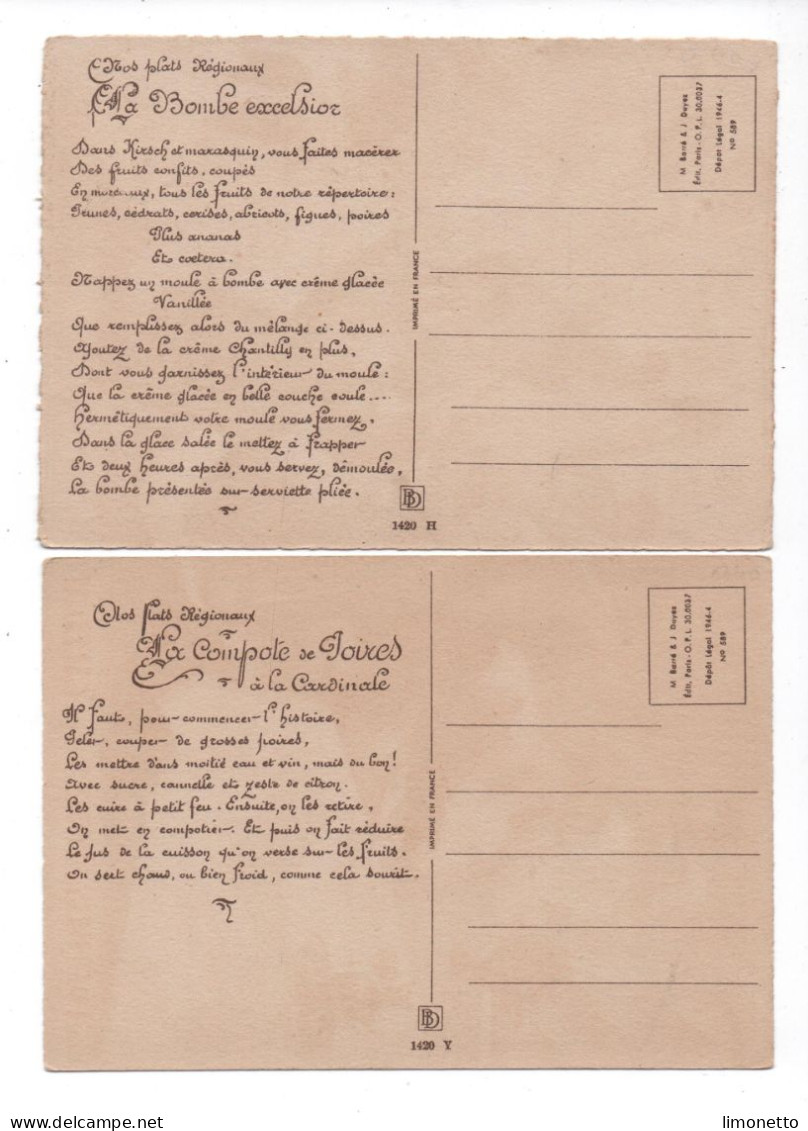 Nos plats Régionaux
La Bombe excelsior
Dans Kirsch et marasquin, vous faites macérer
Des fruits confits, coupés
En morceaux, tous les fruits de notre répertoire:
Prunes, cédrats, cerises, abricots, figues, poires
Plus ananas
Et cœtera.
Nappez un moule à bombe avec crême glacée
Vanillée
Que remplissez alors du mélange ci-dessus.
Ajoutez de la crême Chantilly en plus,
Dont vous garnissez l'intérieur du moule:
Que la crême glacée en belle couche coule....
Hermétiquement votre moule vous fermez,
Dans la glace salée le mettez à frapper
Et deux heures après, vous servez, démoulée,
La bombe présentée sur serviette pliée.
IMPRIMÉ EN FRANCE
BD
1420 H
M. Barré & J. Dayez
Édit. Paris - O.P.L. 30.0037
Dépôt Légal 1946-4
No 589
Nos plats Régionaux
La Compote de Poires
à la Cardinale
Il faut, pour commencer l'histoire,
Peler, couper de grosses poires,
Les mettre dans moitié eau et vin, mais du bon!
Avec sucre, cannelle et zeste de citron.
Les cuire à petit feu. Ensuite, on les retire,
On met en compotier. Et puis on fait réduire
Le jus de la cuisson qu'on verse sur les fruits.
On sert chaud, ou bien froid, comme cela sourit.
IMPRIMÉ EN FRANCE
BD
1420 Y
M. Barré & J. Dayez
Édit. Paris - O.P.L. 30.0037
Dépôt Légal 1946-4
No 589
limonetto